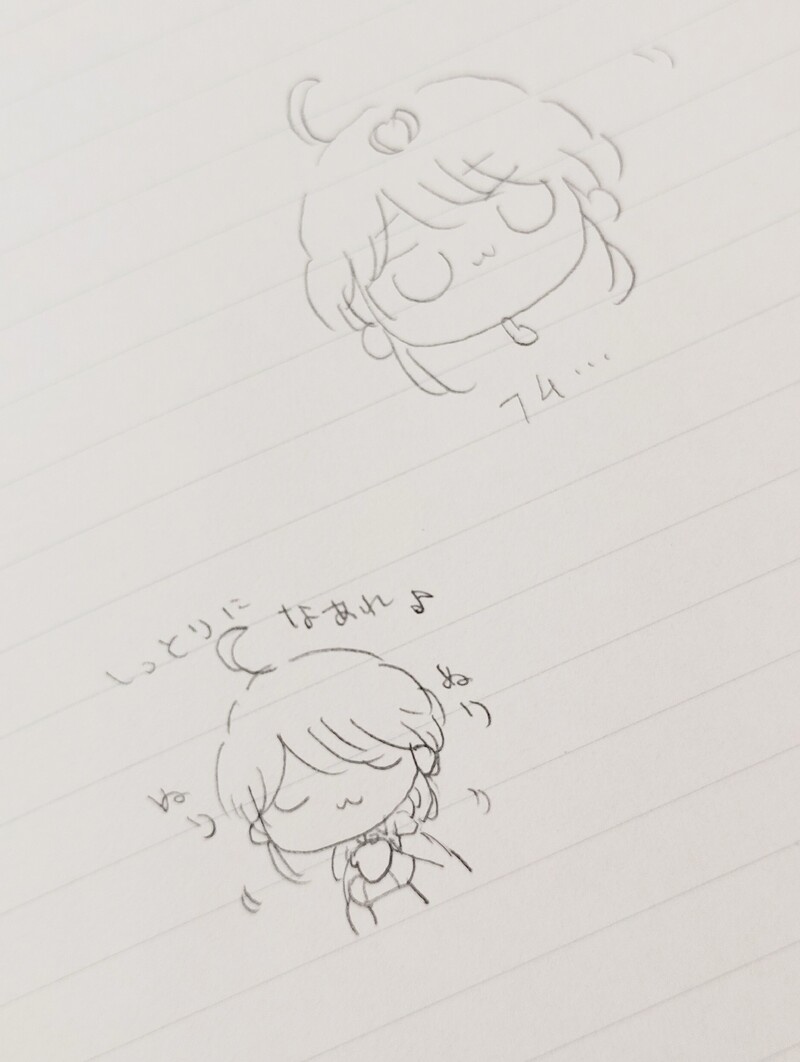 フム…
しっとりに なあれ♪
ぬり
ぬり